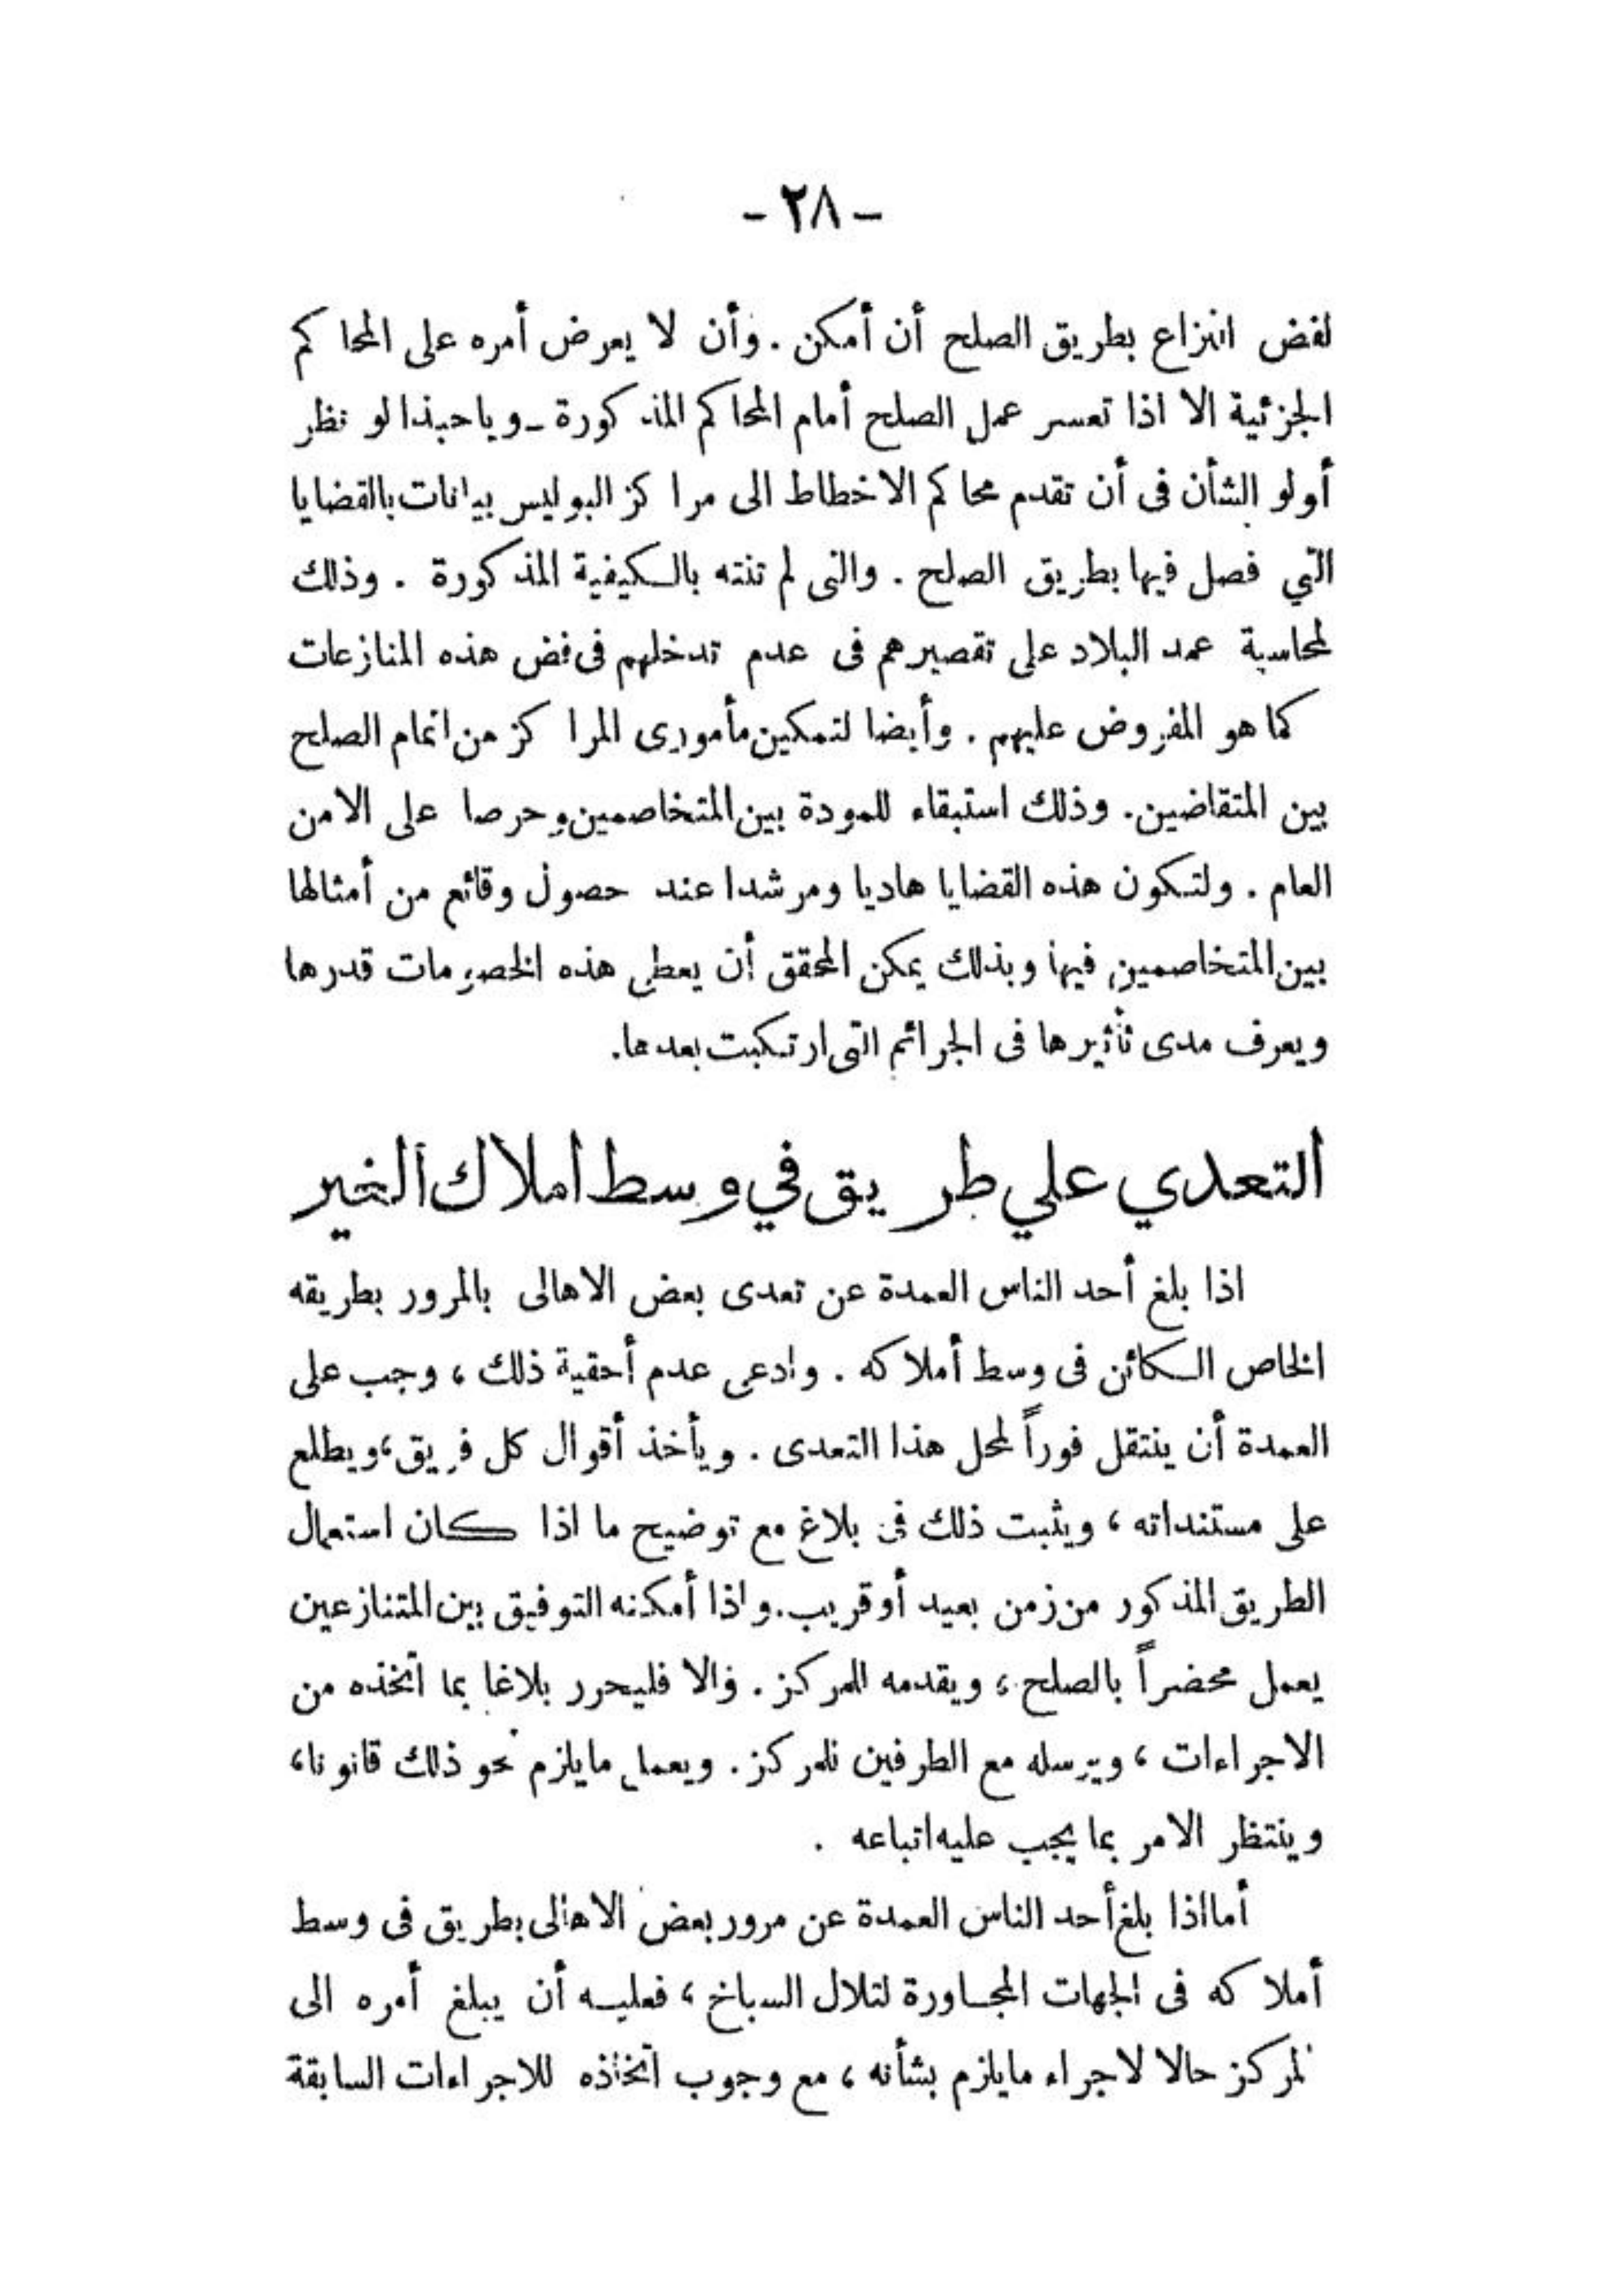 - ٢٨ -
لفض النزاع بطريق الصلح أن أمكن . وأن لا يعرض أمره على المحاكم
الجزئية الا اذا تعسر عمل الصلح أمام المحاكم المذكورة - وياحبذا لو نظر
أولو الشأن فى أن تقدم محاكم الاخطاط الى مراكز البوليس بيانات بالقضايا
التي فصل فيها بطريق الصلح . والتى لم تنته بالكيفية المذكورة . وذلك
لمحاسبة عمد البلاد على تقصيرهم فى عدم تدخلهم فى فض هذه المنازعات
كما هو المفروض عليهم . وأيضا لتمكين مأمورى المراكز من اتمام الصلح
بين المتقاضين. وذلك استبقاء للمودة بين المتخاصمين وحرصا على الامن
العام . ولتكون هذه القضايا هاديا ومرشدا عند حصول وقائع من أمثالها
بين المتخاصمين فيها وبذلك يمكن المحقق أن يعطى هذه الخصومات قدرها
ويعرف مدى تأثيرها فى الجرائم التى ارتكبت بعدها.
التعدي علي طريق في وسط أملاك الغير
اذا بلغ أحد الناس العمدة عن تعدى بعض الاهالى بالمرور بطريقه
الخاص الكائن فى وسط أملاكه . وادعى عدم أحقية ذلك ، وجب على
العمدة أن ينتقل فوراً لمحل هذا التعدى . ويأخذ أقوال كل فريق، ويطلع
على مستنداته ، ويثبت ذلك فى بلاغ مع توضيح ما اذا كان استعمال
الطريق المذكور من زمن بعيد أو قريب. واذا أمكنه التوفيق بين المتنازعين
يعمل محضراً بالصلح ، ويقدمه للمركز . والا فليحرر بلاغا بما اتخذه من
الاجراءات ، ويرسله مع الطرفين للمركز. ويعمل مايلزم نحو ذلك قانونا،
وينتظر الامر بما يجب عليه اتباعه .
أما اذا بلغ أحد الناس العمدة عن مرور بعض الاهالى بطريق فى وسط
أملاكه فى الجهات المجاورة لتلال السباخ ، فعليه أن يبلغ أمره الى
المركز حالا لاجراء مايلزم بشأنه ، مع وجوب اتخاذه للاجراءات السابقة